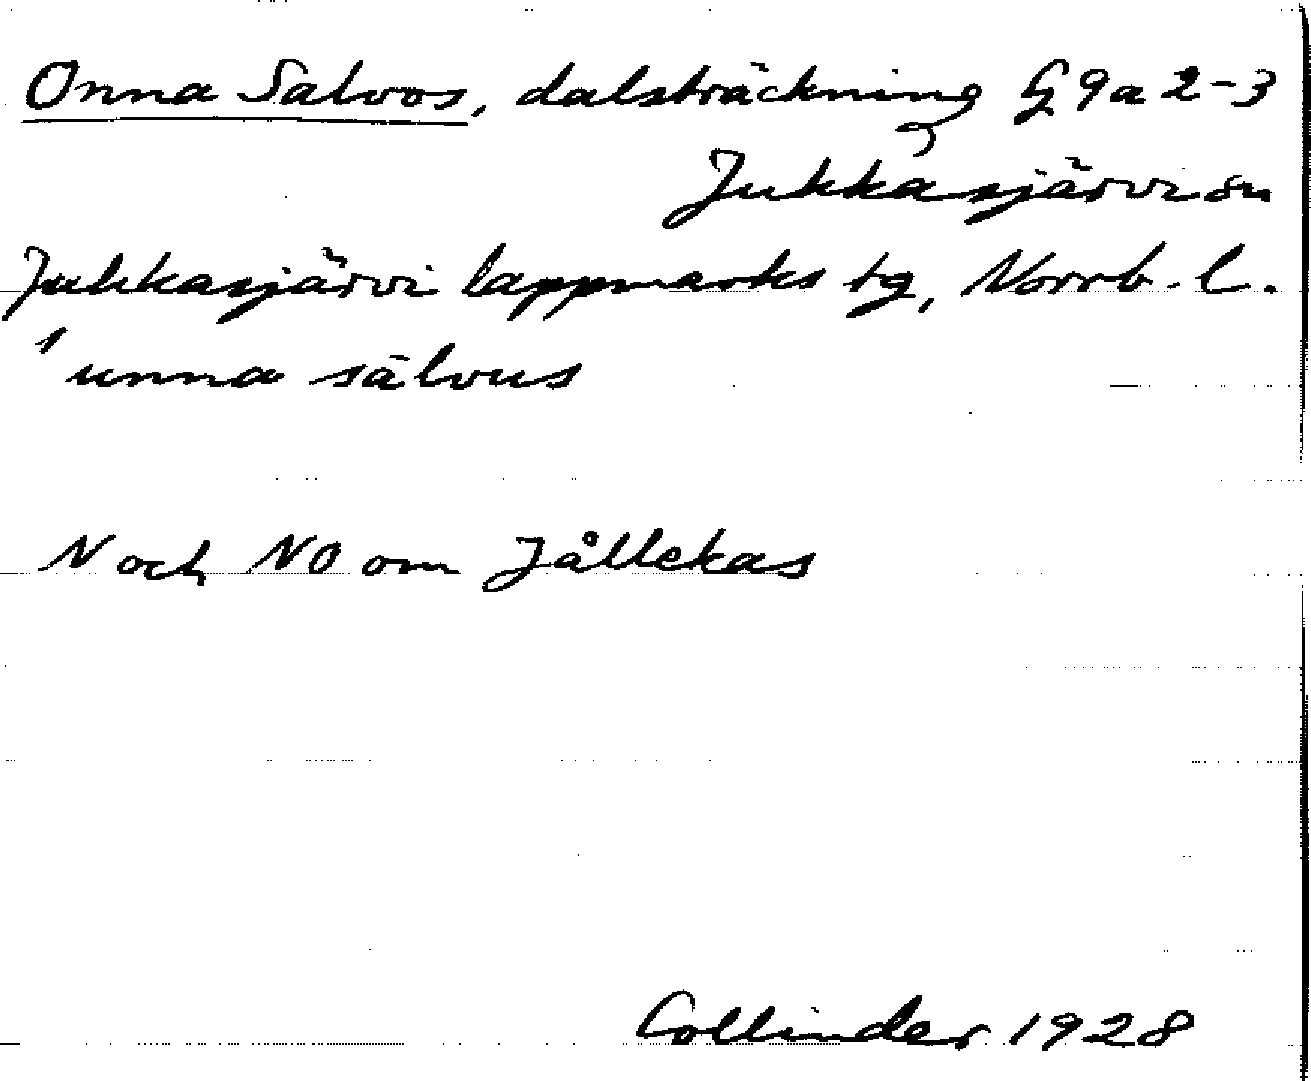 Onna Salvos, dalsträckning G 9a 2-3
Jukkasjärvi sn
Jukkasjärvi lappmarks tg, Norrb. l.
ˈunna sālvus
N och NO om Jållekas
Collinder 1928